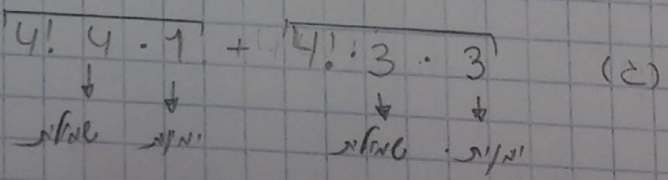 4! 4 · 1 + 4! · 3 · 3 (ב)
שמאלית ימנית שמאלית ימנית